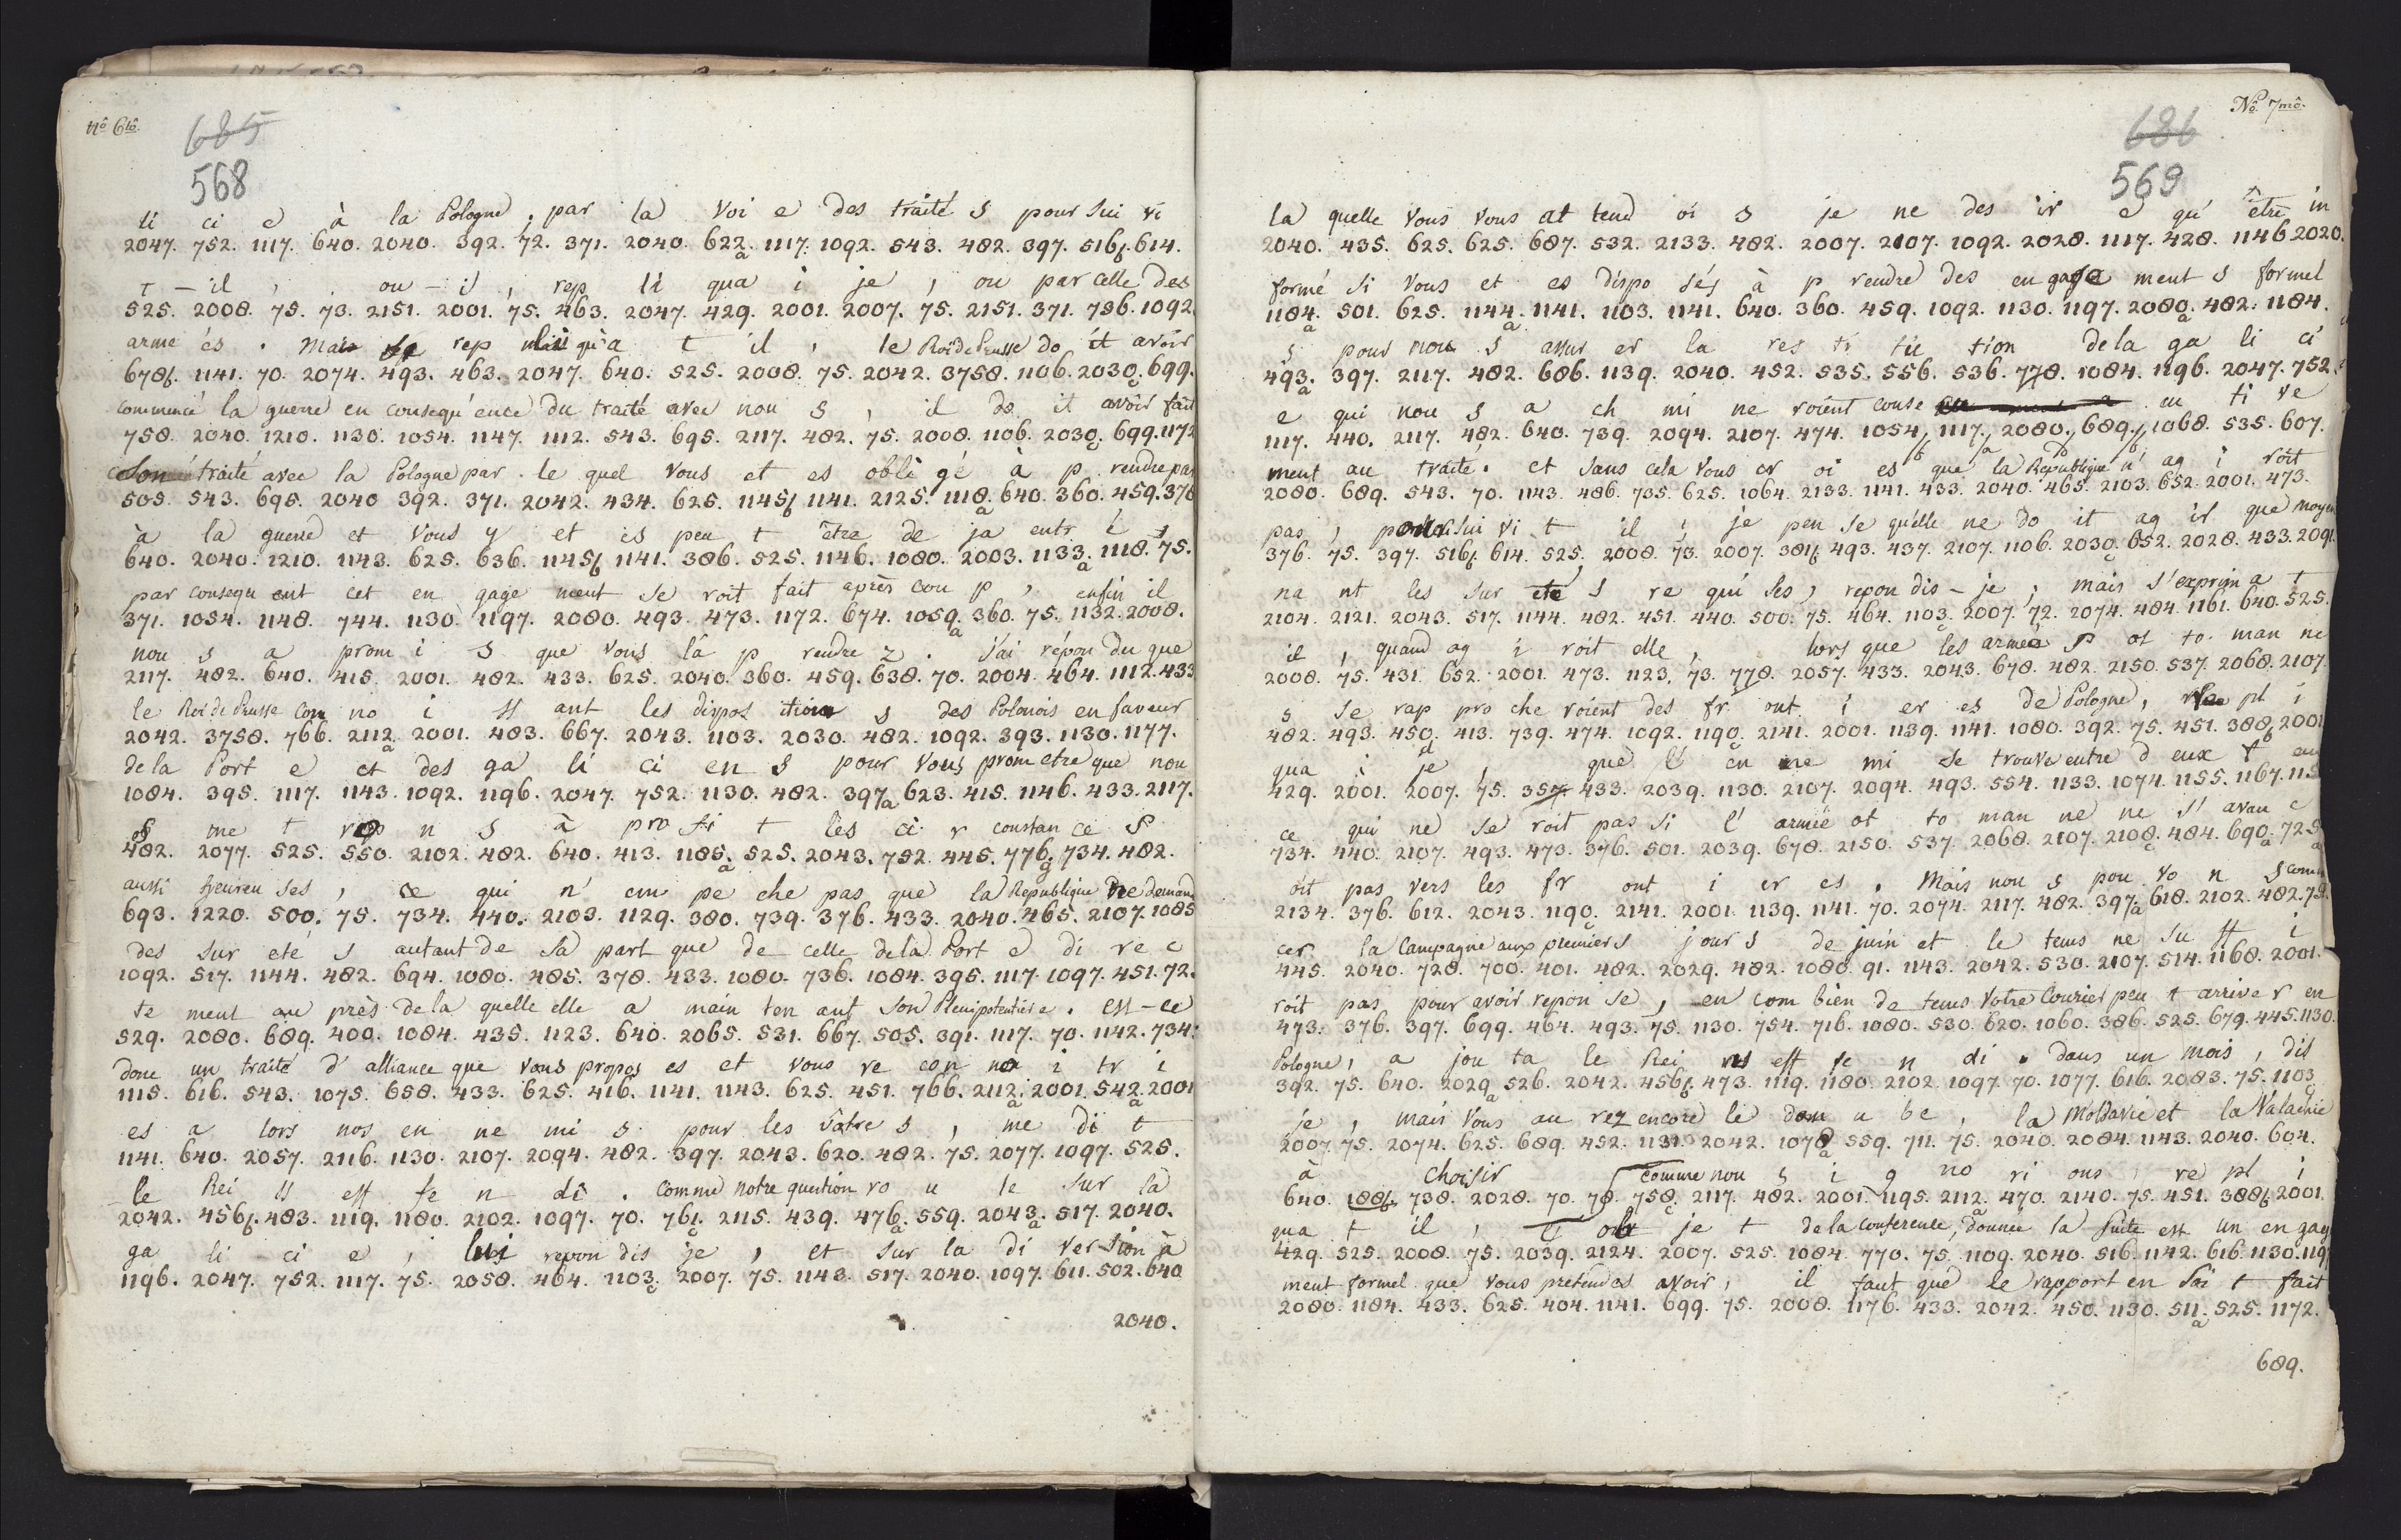 nº 6tô.
685
568
li ci e à la Pologne, par la Voi e des traité s pour Sui vi
2047. 752. 1117. 640. 2040. 392. 72. 371. 2040. 622. 1117. 1092. 543. 482. 397. 516f. 614.
t - il , ou - i , rep li qua i je , ou par celle des
525. 2008. 75. 73. 2151. 2001. 75. 463. 2047. 429. 2001. 2007. 75. 2151. 371. 736. 1092.
arme és . Mais rep qu'a t il , le Roi de Prusse do it avoir
678f. 1141. 70. 2074. 493. 463. 2047. 640. 525. 2008. 75. 2042. 3758. 1106. 2030. 699.
commencé la guerre en consequ' ence du traité avec nou s , il do it avoir fait
758. 2040. 1210. 1130. 1054. 1147. 1112. 543. 695. 2117. 482. 75. 2008. 1106. 2030. 699. 1172
Son traité avec la Pologne par le quel Vous et es obli gé à p rendre par
505. 543. 695. 2040 392. 371. 2042. 434. 625. 1145f 1141. 2125. 1118. 640. 360. 459. 376
à la guerre et Vous y et es peu t être de ja entr é s
640. 2040. 1210. 1143. 625. 636. 1145f 1141. 386. 525. 1146. 1080. 2003. 1133. 1118. 75.
par consequ ent cet en gage ment se roit fait après cou p , enfin il
371. 1054. 1148. 744. 1130. 1197. 2080. 493. 473. 1172. 674. 1059. 360. 75. 1132. 2008.
nou s a prom i s que vous la p rendre z . J'ai répon du que
2117. 482. 640. 415. 2001. 482. 433. 625. 2040. 360. 459. 638. 70. 2004. 464. 1112. 433
le Roi de Prusse Con no i ss ant les dispos ition s des Polonois en faveur
2042. 3758. 766. 2112. 2001. 483. 667. 2043. 1103. 2030. 482. 1092. 393. 1130. 1177.
de la Port e et des ga li ci en s pour Vous prom etre que nou
1084. 395. 1117. 1143. 1092. 1196. 2047. 752. 1130. 482. 397a 623. 415. 1146. 433. 2117.
s me t n s à pro fi t les ci r constan ce s
482. 2077. 525. 550. 2102. 482. 640. 413. 1185. 525. 2043. 752. 445. 776. 734. 482.
aussi heureu ses , ce qui n' em pe che pas que la Republique ne demand
693. 1220. 500. 75. 734. 440. 2103. 1129. 380. 739. 376. 433. 2040. 465. 2107. 1085
des sur eté s autant de sa part que de celle de la Port e di re c
1092. 517. 1144. 482. 694. 1080. 485. 378. 433. 1080. 736. 1084. 395. 1117. 1097. 451. 72.
te ment au près de la quelle elle a main ten ant Son Plenipotentiere . est-ce
529. 2080. 689. 400. 1084. 435. 1123. 640. 2065. 531. 667. 505. 391. 1117. 70. 1142. 734.
donc un traité d' alliance que vous propos es et vous re con no i tr i
1115. 616. 543. 1075. 658. 433. 625. 416. 1141. 1143. 625. 451. 766. 2112. 2001. 542. 2001
es a lors nos en ne mi s pour les vôtre s , me di t
1141. 640. 2057. 2116. 1130. 2107. 2094. 482. 397. 2043. 620. 482. 75. 2077. 1097. 525.
le Rei ss eff fe n di . Comme notre question ro u le Sur la
2042. 456f. 483. 1119. 1180. 2102. 1097. 70. 761. 2115. 439. 476. 559. 2043. 517. 2040.
ga li - ci e , lui repon dis je , et sur la di ver sion à
1196. 2047. 752. 1117. 75. 2058. 464. 1103. 2007. 75. 1143. 517. 2040. 1097. 611. 502. 640
2040.
Nº 7mô.
686
569
la quelle vous vous at tend oi s je ne des ir e qu' être in
2040. 435. 625. 625. 687. 532. 2133. 482. 2007. 2107. 1092. 2028. 1117. 428. 1146 2020.
formé si vous et es dispo sés à p rendre des en gage ment s formel
1184. 501. 625. 1144. 1141. 1103. 1141. 640. 360. 459. 1092. 1130. 1197. 2080. 482. 1184.
s pour nou s assur er la res ti tu tion de la ga li ci
493. 397. 2117. 482. 686. 1139. 2040. 452. 535. 556. 536. 778. 1084. 1196. 2047. 752.
e qui nou s a ch mi ne roient conse cu ti ve
1117. 440. 2117. 482. 640. 739. 2094. 2107. 474. 1054 1117. 2080. 689. 1068. 535. 607.
ment au traité. et sans cela vous cr oi es que la Republique n' ag i roit
2080. 689. 543. 70. 1143. 486. 735. 625. 1064. 2133. 1141. 433. 2040. 465. 2103. 652. 2001. 473.
pas , pour Sui vi t il ; je pen se qu'elle ne do it ag ir que moyen
376. 75. 397. 516f 614. 525. 2008. 73. 2007. 381f 493. 437. 2107. 1106. 2030. 652. 2028. 433. 2091.
na nt les sur eté s re qui ses, repon dis - je ; mais s'exprim a t
2104. 2121. 2043. 517. 1144. 482. 451. 440. 500. 75. 464. 1103. 2007. 72. 2074. 484. 1161. 640. 525.
il , quand ag i roit elle , lors que les armée s ot to man ne
2008. 75. 431. 652. 2001. 473. 1123. 73. 778. 2057. 433. 2043. 678. 482. 2150. 537. 2068. 2107.
s se rap pro che roient des fr ont i er es de Pologne, re pl i
482. 493. 450. 413. 739. 474. 1092. 1190. 2141. 2001. 1139. 1141. 1080. 392. 75. 451. 388. 2001
qua i je , que l' en ne mi se trouve entre d eux f eu
429. 2001. 2007. 75. 357 433. 2039. 1130. 2107. 2094. 493. 554. 1133. 1074. 1155. 1167. 115
ce qui ne se roit pas si l' armée ot to man ne ne s' avan c
734. 440. 2107. 493. 473. 376. 501. 2039. 678. 2150. 537. 2068. 2107. 2108. 484. 690. 725
oit pas vers les fr ont i er es . Mais nou s pou vo n s com
2134. 376. 612. 2043. 1190. 2141. 2001. 1139. 1141. 70. 2074. 2117. 482. 397. 618. 2102. 482. 75
cer la Campagne aux premiers jour s de juin et le tems ne su ff i
445. 2040. 728. 700. 401. 482. 2029. 482. 1080. 91. 1143. 2042. 530. 2107. 514. 1168. 2001.
roit pas pour avoir repon se , en com bien de tems Votre Courier peu t arrive r en
473. 376. 397. 699. 464. 493. 75. 1130. 754. 716. 1080. 530. 620. 1060. 386. 525. 679. 445. 1130.
Pologne, a jou ta le Rei eff fe n di . Dans un mois , dis
392. 75. 640. 2029. 526. 2042. 456f. 473. 1119. 1180. 2102. 1097. 70. 1077. 616. 2083. 75. 1103
je , mais vous au rez encore le dan u be , la Moldavie et la Valachie
2007. 75. 2074. 625. 689. 452. 1131. 2042. 1078 559. 711. 75. 2040. 2084. 1143. 2040. 604.
à choisir comme nou s i g no ri ons , re pl i
640. 188f. 738. 2028. 70. 78. 758. 2117. 482. 2001. 1195. 2112. 470. 2140. 75. 451. 388f 2001.
qua t il , l' ob je t de la conference, donnée la Suite est un en gag
429. 525. 2008. 75. 2039. 2124. 2007. 525. 1084. 770. 75. 1109. 2040. 516. 1142. 616. 1130. 119
ment formel que vous pretendes avoir ; il faut que le rapport en soi t fait
2080. 1184. 433. 625. 404. 1141. 699. 75. 2008. 1176. 433. 2042. 450. 1130. 511. 525. 1172.
689.